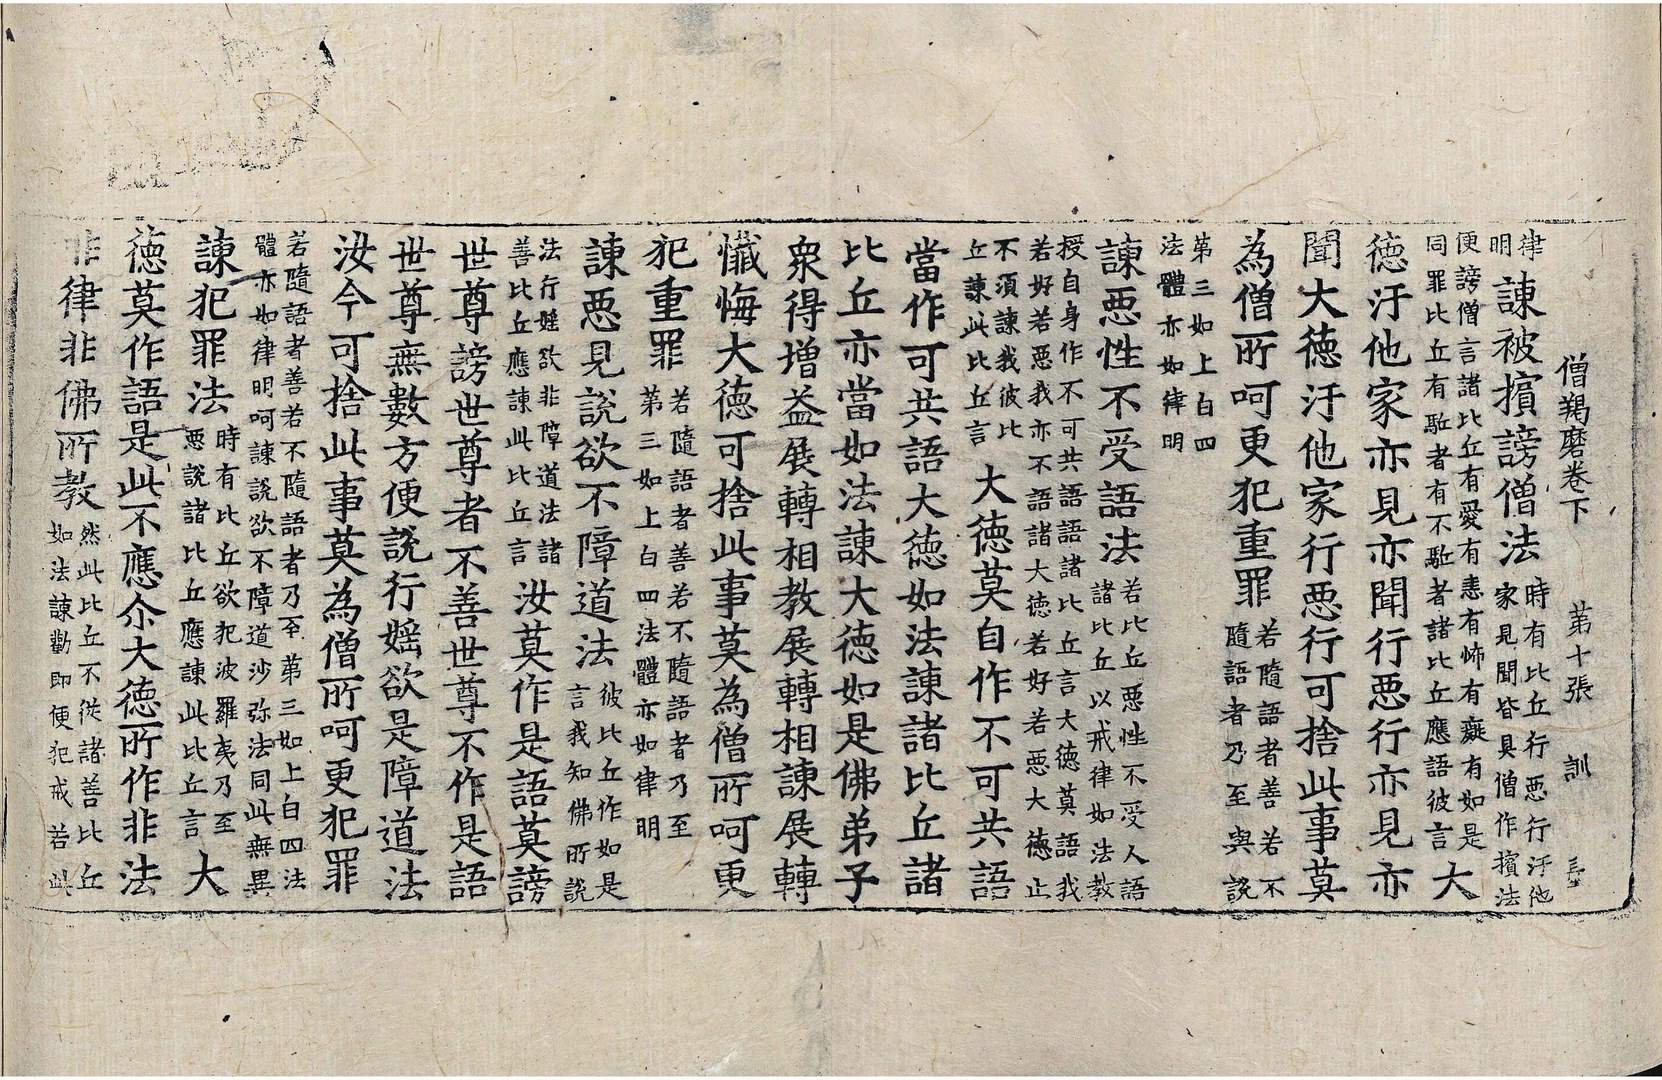 僧羯磨卷下 第十張 訓
律明諫被擯謗僧法時有比丘行惡行汙他家見聞皆具僧作擯法
便謗僧言諸比丘有愛有恚有怖有癡有如是同罪比丘有駈者有不駈者諸比丘應語彼言大
德汙他家亦見亦聞行惡行亦見亦
聞大德汙他家行惡行可捨此事莫
為僧所呵更犯重罪若隨語者善若不隨語者乃至與說
第三如上白四法體亦如律明
諫惡性不受語法若比丘惡性不受人語諸比丘以戒律如法教
授自身作不可共語語諸比丘言大德莫語我若好若惡我亦不語諸大德若好若惡大德止
不須諫我彼比丘諫此比丘言大德莫自作不可共語
當作可共語大德如法諫諸比丘諸
比丘亦當如法諫大德如是佛弟子
衆得增益展轉相教展轉相諫展轉
懺悔大德可捨此事莫為僧所呵更
犯重罪若隨語者善若不隨語者乃至第三如上白四法體亦如律明
諫惡見說欲不障道法彼比丘作如是言我知佛所說
法行婬欲非障道法諸善比丘應諫此比丘言汝莫作是語莫謗
世尊謗世尊者不善世尊不作是語
世尊無數方便說行婬欲是障道法
汝今可捨此事莫為僧所呵更犯罪
若隨語者善若不隨語者乃至第三如上白四法體亦如律明呵諫說欲不障道沙弥法同此無異
諫犯罪法時有比丘欲犯波羅夷乃至惡說諸比丘應諫此比丘言大
德莫作語是此不應尒大德所作非法
非律非佛所教然此比丘不從諸善比丘如法諫勸即便犯戒若此